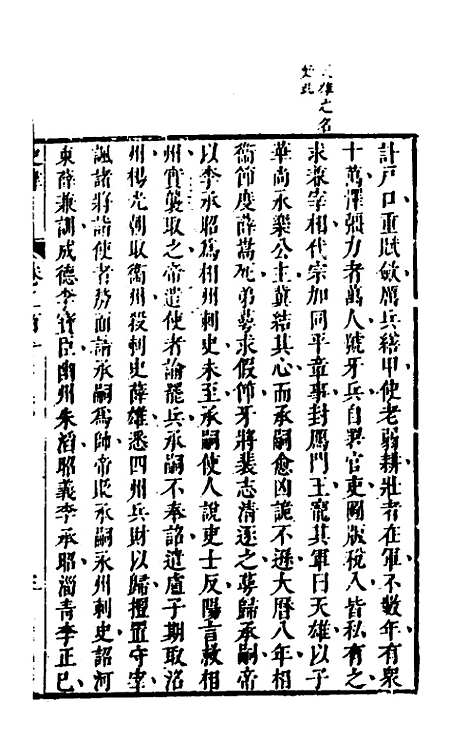 天雄之名
始此
計戸口重賦斂厲兵繕甲使老弱耕壯者在軍不數年有衆
十萬擇彊力者萬人號牙兵自署官吏圖版稅入皆私有之
求兼宰相代宗加同平章事封鴈門王寵其軍曰天雄以子
華尚永樂公主冀結其心而承嗣愈凶詭不遜大曆八年相
衞節度薛嵩死弟萼求假節牙將裴志清逐之萼歸承嗣帝
以李承昭爲相州刺史未至承嗣使人說吏士反陽言救相
州實襲取之帝遣使者諭罷兵承嗣不奉詔遣盧子期取洺
州楊光朝取衞州役刺史薛雄悉四州兵財以歸擅置守宰
諷諸將詣使者剺面請承嗣爲帥帝貶承嗣永州刺史詔河
東薛兼訓成德李寶臣幽州朱滔昭義李承昭淄青李正已